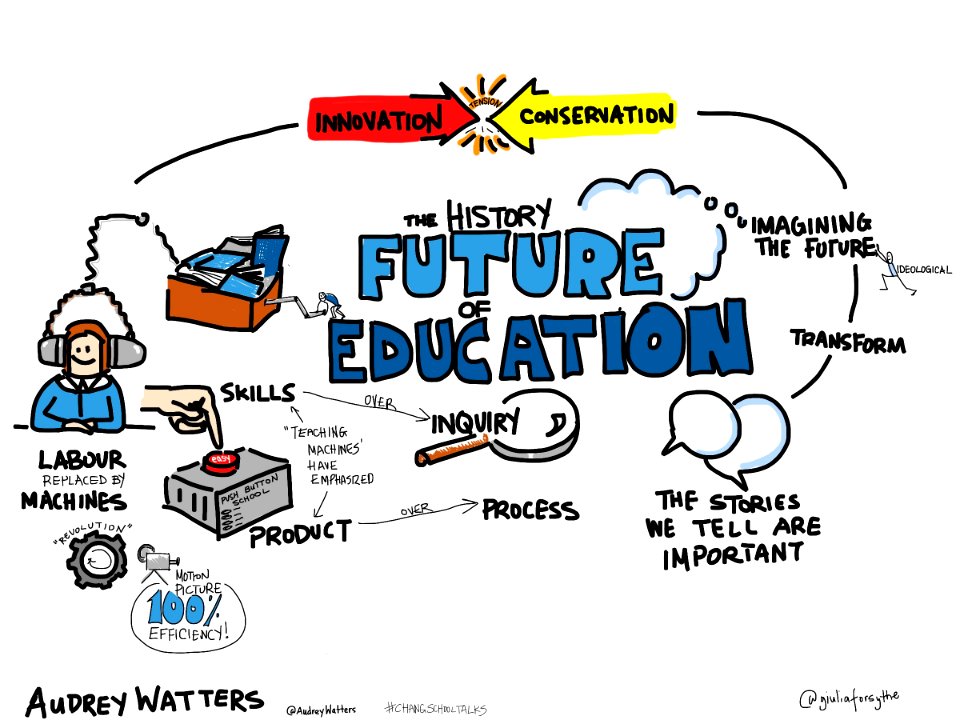 INNOVATION
TENSION
CONSERVATION
THE HISTORY
FUTURE
OF
EDUCATION
IMAGINING
THE FUTURE
IDEOLOGICAL
TRANSFORM
SKILLS
OVER
INQUIRY
"TEACHING
MACHINES'
HAVE
EMPHASIZED
PRODUCT
OVER
PROCESS
LABOUR
REPLACED BY
MACHINES
easy
PUSH BUTTON
SCHOOL
"REVOLUTION"
MOTION
PICTURE
100%
EFFICIENCY!
THE STORIES
WE TELL ARE
IMPORTANT
AUDREY WATTERS
@AudreyWatters
#CHANGSCHOOLTALKS
@giuliaforsythe